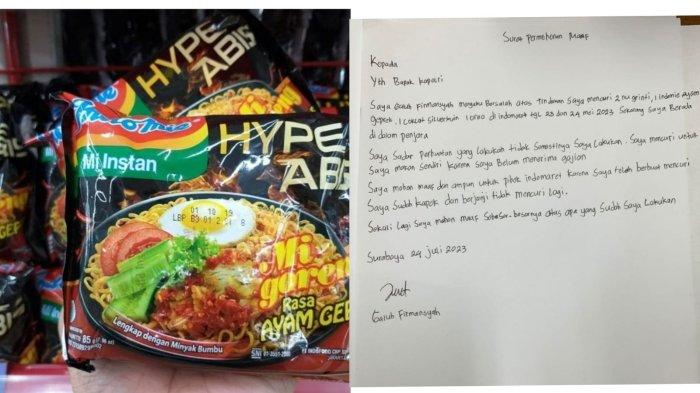 HYPE
ABIS
Indomie
Mi Instan
HYPE
ABIS
01 10 19
LBP B3 01 2
Mi
goreng
Rasa
AYAM GEP
Lengkap dengan Minyak Bumbu
85 g
SNI
Surat Permohonan Maaf
Kepada
Yth Bapak Kapolri
Saya Galuh Firmansyah mengaku Bersalah atas Tindakan Saya mencuri 2 nugrinti, 1 Indomie Ayam
Geprek, 1 Coklat Silverkuin 1 oreo di indomaret tgl 23 dan 24 mei 2023 Sekarang Saya Berada
di dalam penjara
Saya Sadar Perbuatan yang Lakukah tidak Semestinya Saya Lakukan. Saya mencuri untuk
Saya makan Sendiri karena Saya Belum menerima gajian
Saya mohon maaf dan ampun untuk pihak indomaret karena Saya telah berbuat mencuri
Saya Sudah kapok dan berjanji tidak mencuri lagi.
Sekali Lagi Saya mohon maaf Sebesar-besarnya atas apa yang Sudah Saya Lakukan
Surabaya 24 juli 2023
Galuh Firmansyah